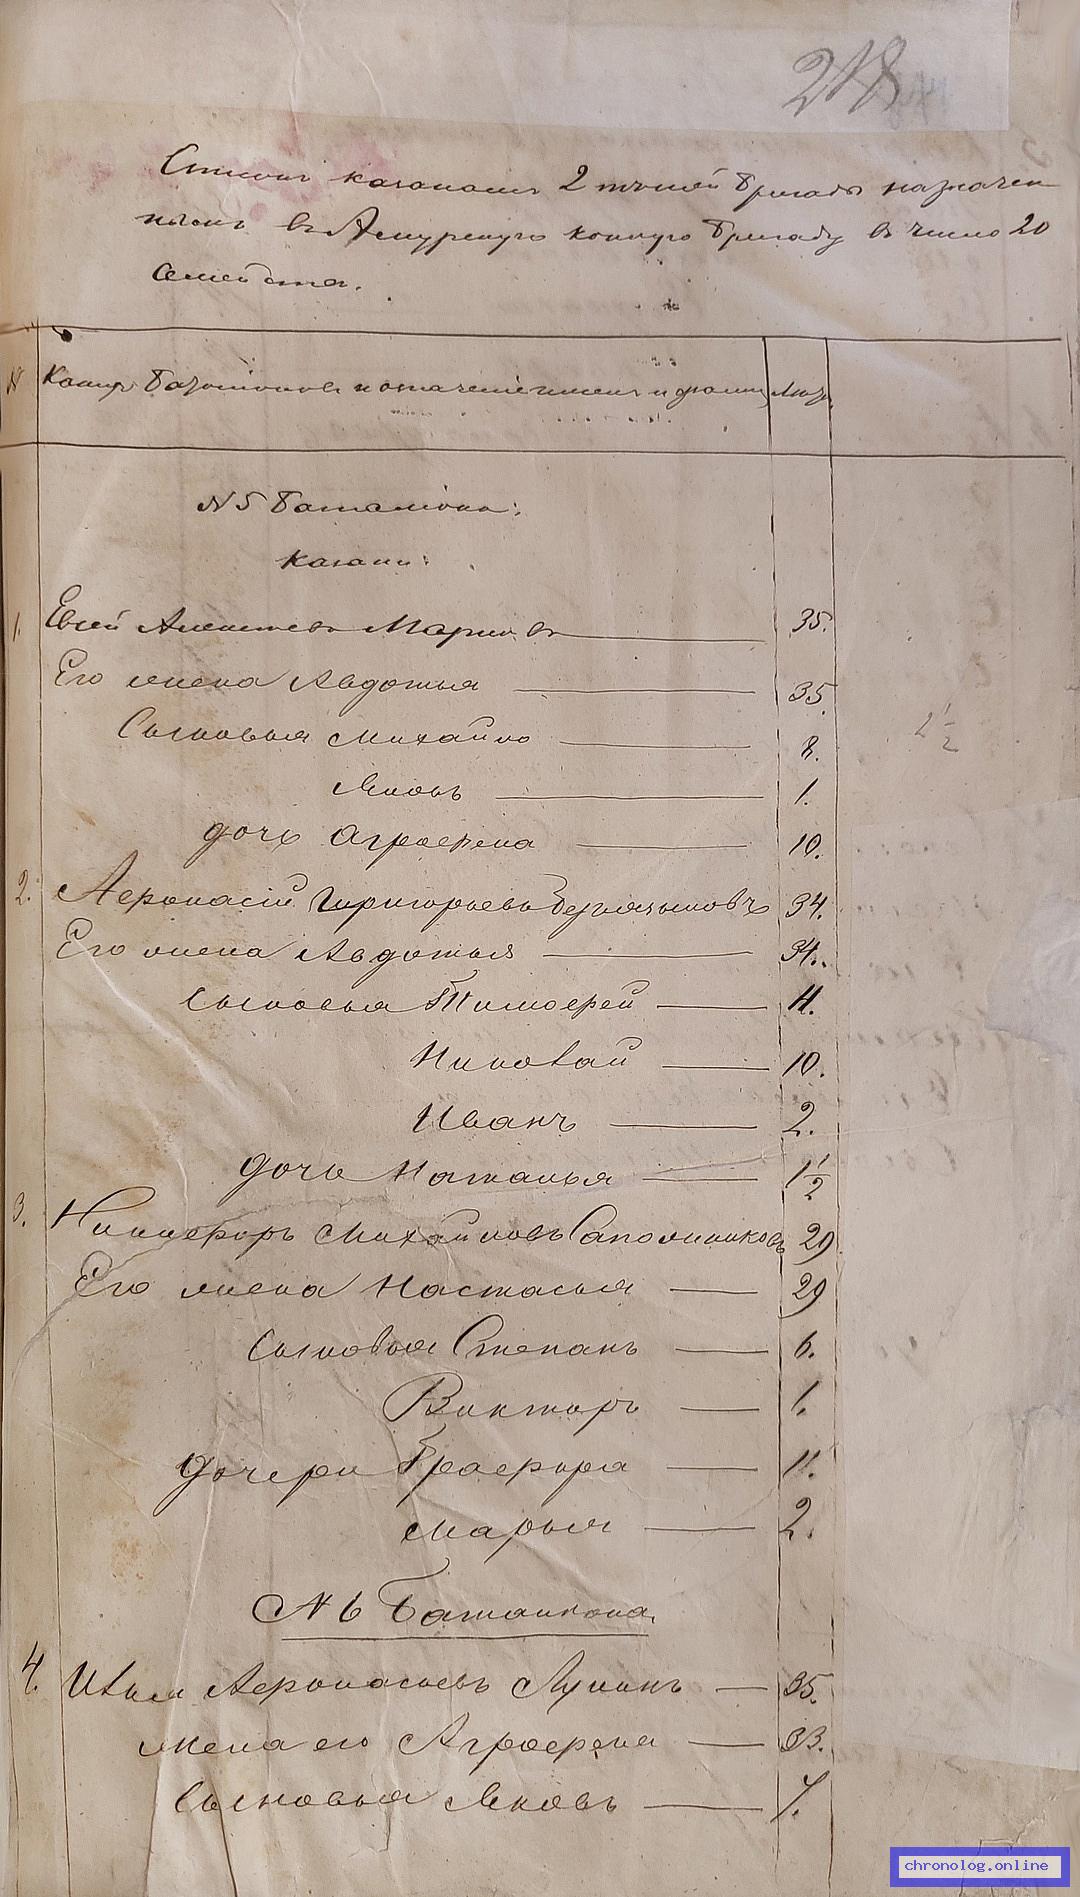 218
Списокъ казакамъ 2 пѣшей бригады назначен
нымъ въ Амурскую конную бригаду въ число 20
семейства.
№ Коихъ баталіоновъ и званіе имена и фамил Лѣта
№ 5 Баталіона:
Казаки:
1. Евсей Алексѣевъ Марковъ 35.
Его жена Авдотья 35.
Сыновья Михайло 8. 2 1/2
Яковъ 1.
дочь Аграфена 10.
2. Афонасій Григорьевъ Безъязыковъ 34.
Его жена Авдотья 34.
Сыновья Тимофей 11.
Николай 10.
Иванъ 2.
дочь Наталья 1 1/2
3. Никифоръ Михайловъ Сапожниковъ 29
Его жена Настасья 29
Сыновья Степанъ 6.
Викторъ 1.
дочери Графира 11.
Марья 2.
№ 6 Баталіона.
4. Илья Афонасьевъ Лукинъ 35.
жена его Аграфена 33.
Сыновья Яковъ 7.
chronolog.online